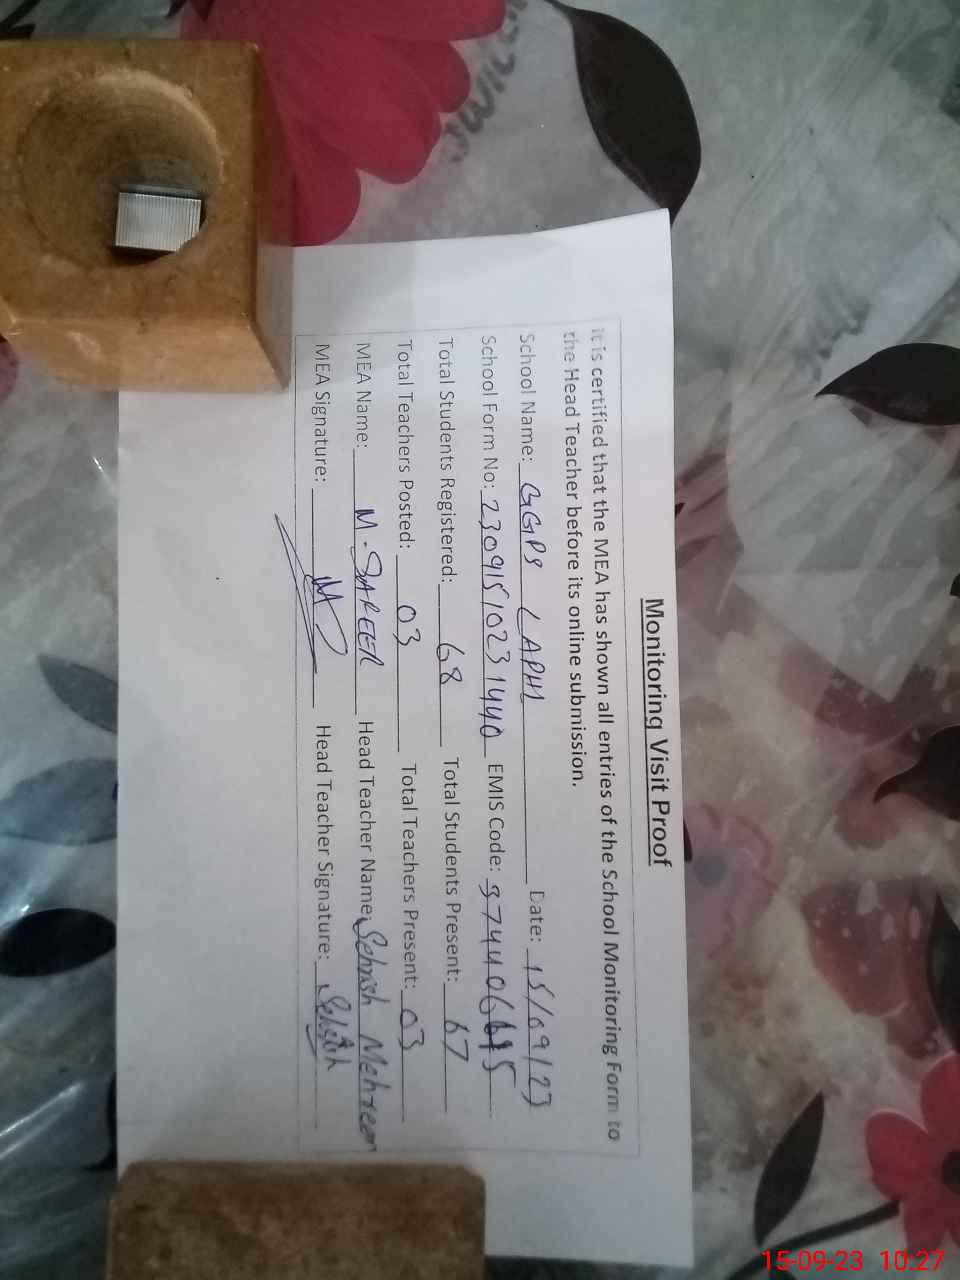 Monitoring Visit Proof
It is certified that the MEA has shown all entries of the School Monitoring Form to
the Head Teacher before its online submission.
School Name: GGPS LAPHI Date: 15/09/23
School Form No: 23091510231440 EMIS Code:
Total Students Registered: 68 Total Students Present: 67
Total Teachers Posted: 03 Total Teachers Present: 03
MEA Name: M. SAFEER Head Teacher Name: Sehrish Mehreen
MEA Signature: Head Teacher Signature: Sehrish
15-09-23 10:27